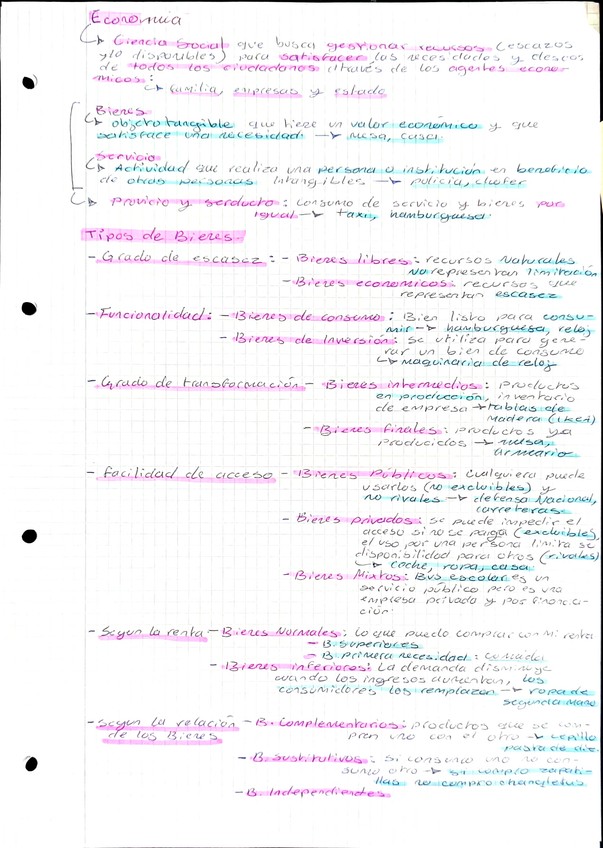 Economia
↳ Ciencia Social que busca gestionar recursos (escazos
y/o disponibles) para satisfacer las necesidades y deseos
de todos los ciudadanos através de los agentes econo-
micos:
↳ familia, empresas y estado
Bienes
↳ objeto tangible que tiene un valor económico y que
satisface una necesidad → mesa, casa
Servicio
↳ Actividad que realiza una persona o institución en beneficio
de otras personas Intangibles → policia, chofer
↳ Provicio y serducto: consumo de servicio y bienes por
igual → taxi, hamburguesa
Tipos de Bienes-
- Grado de escasez: - Bienes libres: recursos Naturales
No representan limitación
- Bienes economicos: recursos que
representan escasez
- Funcionalidad: - Bienes de consumo: Bien listo para consu-
mir → hamburguesa, reloj
- Bienes de Inversión: se utiliza para gene-
rar un bien de consumo
↳ maquinaria de reloj
- Grado de transformación - Bienes intermedios: productos
en producción, inventario
de empresa → tablas de
Madera (IKEA)
- Bienes finales: productos ya
producidos → mesa,
armario
- Facilidad de acceso - Bienes Públicos: Cualquiera puede
usarlos (no excluibles) y
no rivales → defensa Nacional,
carreteras
- Bienes privados: se puede impedir el
acceso si no se paga (excluibles),
el uso por una persona limita su
disponibilidad para otros (rivales)
↳ coche, ropa, casa
- Bienes Mixtos: Bus escolar es un
servicio público pero es una
empresa privada y por financia-
ción.
- Segun la renta - Bienes Normales: Lo que puedo comprar con Mi renta
- B. Superiores
- B primera necesidad: comida
- Bienes inferiores: La demanda disminuye
cuando los ingresos aumentan, los
consumidores los remplazan → ropa de
segunda mano
- Segun la relación - B. Complementarios: productos que se com-
de los Bienes pran uno con el otro → cepillo
pasta de die.
- B. Sustitutivos: si consumo uno no con-
sumo otro → si compro zapati-
llas no compro chancletas
- B. Independientes